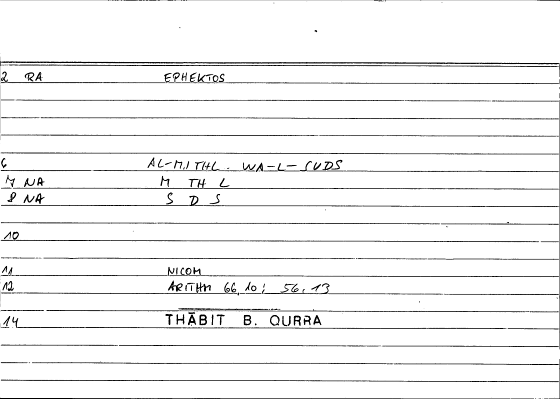 2 RA EPHEKTOS
6 AL-MITHL. WA-L-SUDS
7 NA M TH L
8 NA S D S
10
11 NICOM
12 ARITHM 66,10; 56,13
14 THĀBIT B. QURRA